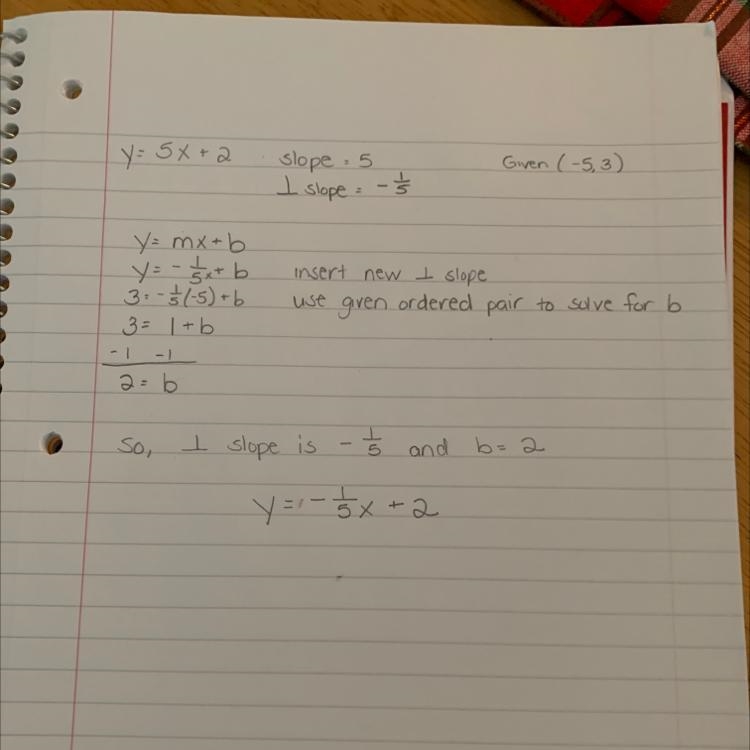 y = 5x + 2 slope = 5 Given (-5,3)
⊥ slope = - 1/5
y = mx + b
y = - 1/5 x + b insert new ⊥ slope
3 = - 1/5 (-5) + b use given ordered pair to solve for b
3 = 1 + b
-1 -1
2 = b
So, ⊥ slope is - 1/5 and b = 2
y = - 1/5 x + 2